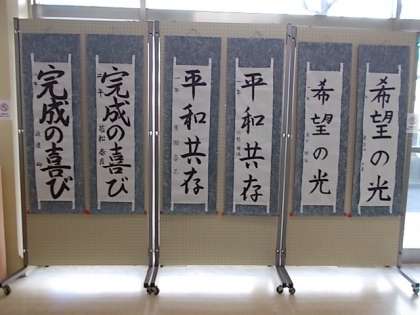 希望の光
希望の光
平和共存
平和共存
一年
完成の喜び
二年
完成の喜び